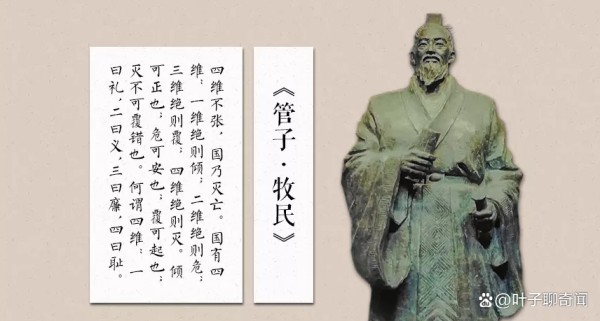 《管子·牧民》
四维不张，国乃灭亡。国有四
维：一维绝则倾；二维绝则危；
三维绝则覆；四维绝则灭。倾
可正也；危可安也；覆可起也；
灭不可覆错也。何谓四维：一
曰礼，二曰义，三曰廉，四曰耻。
@叶子聊奇闻